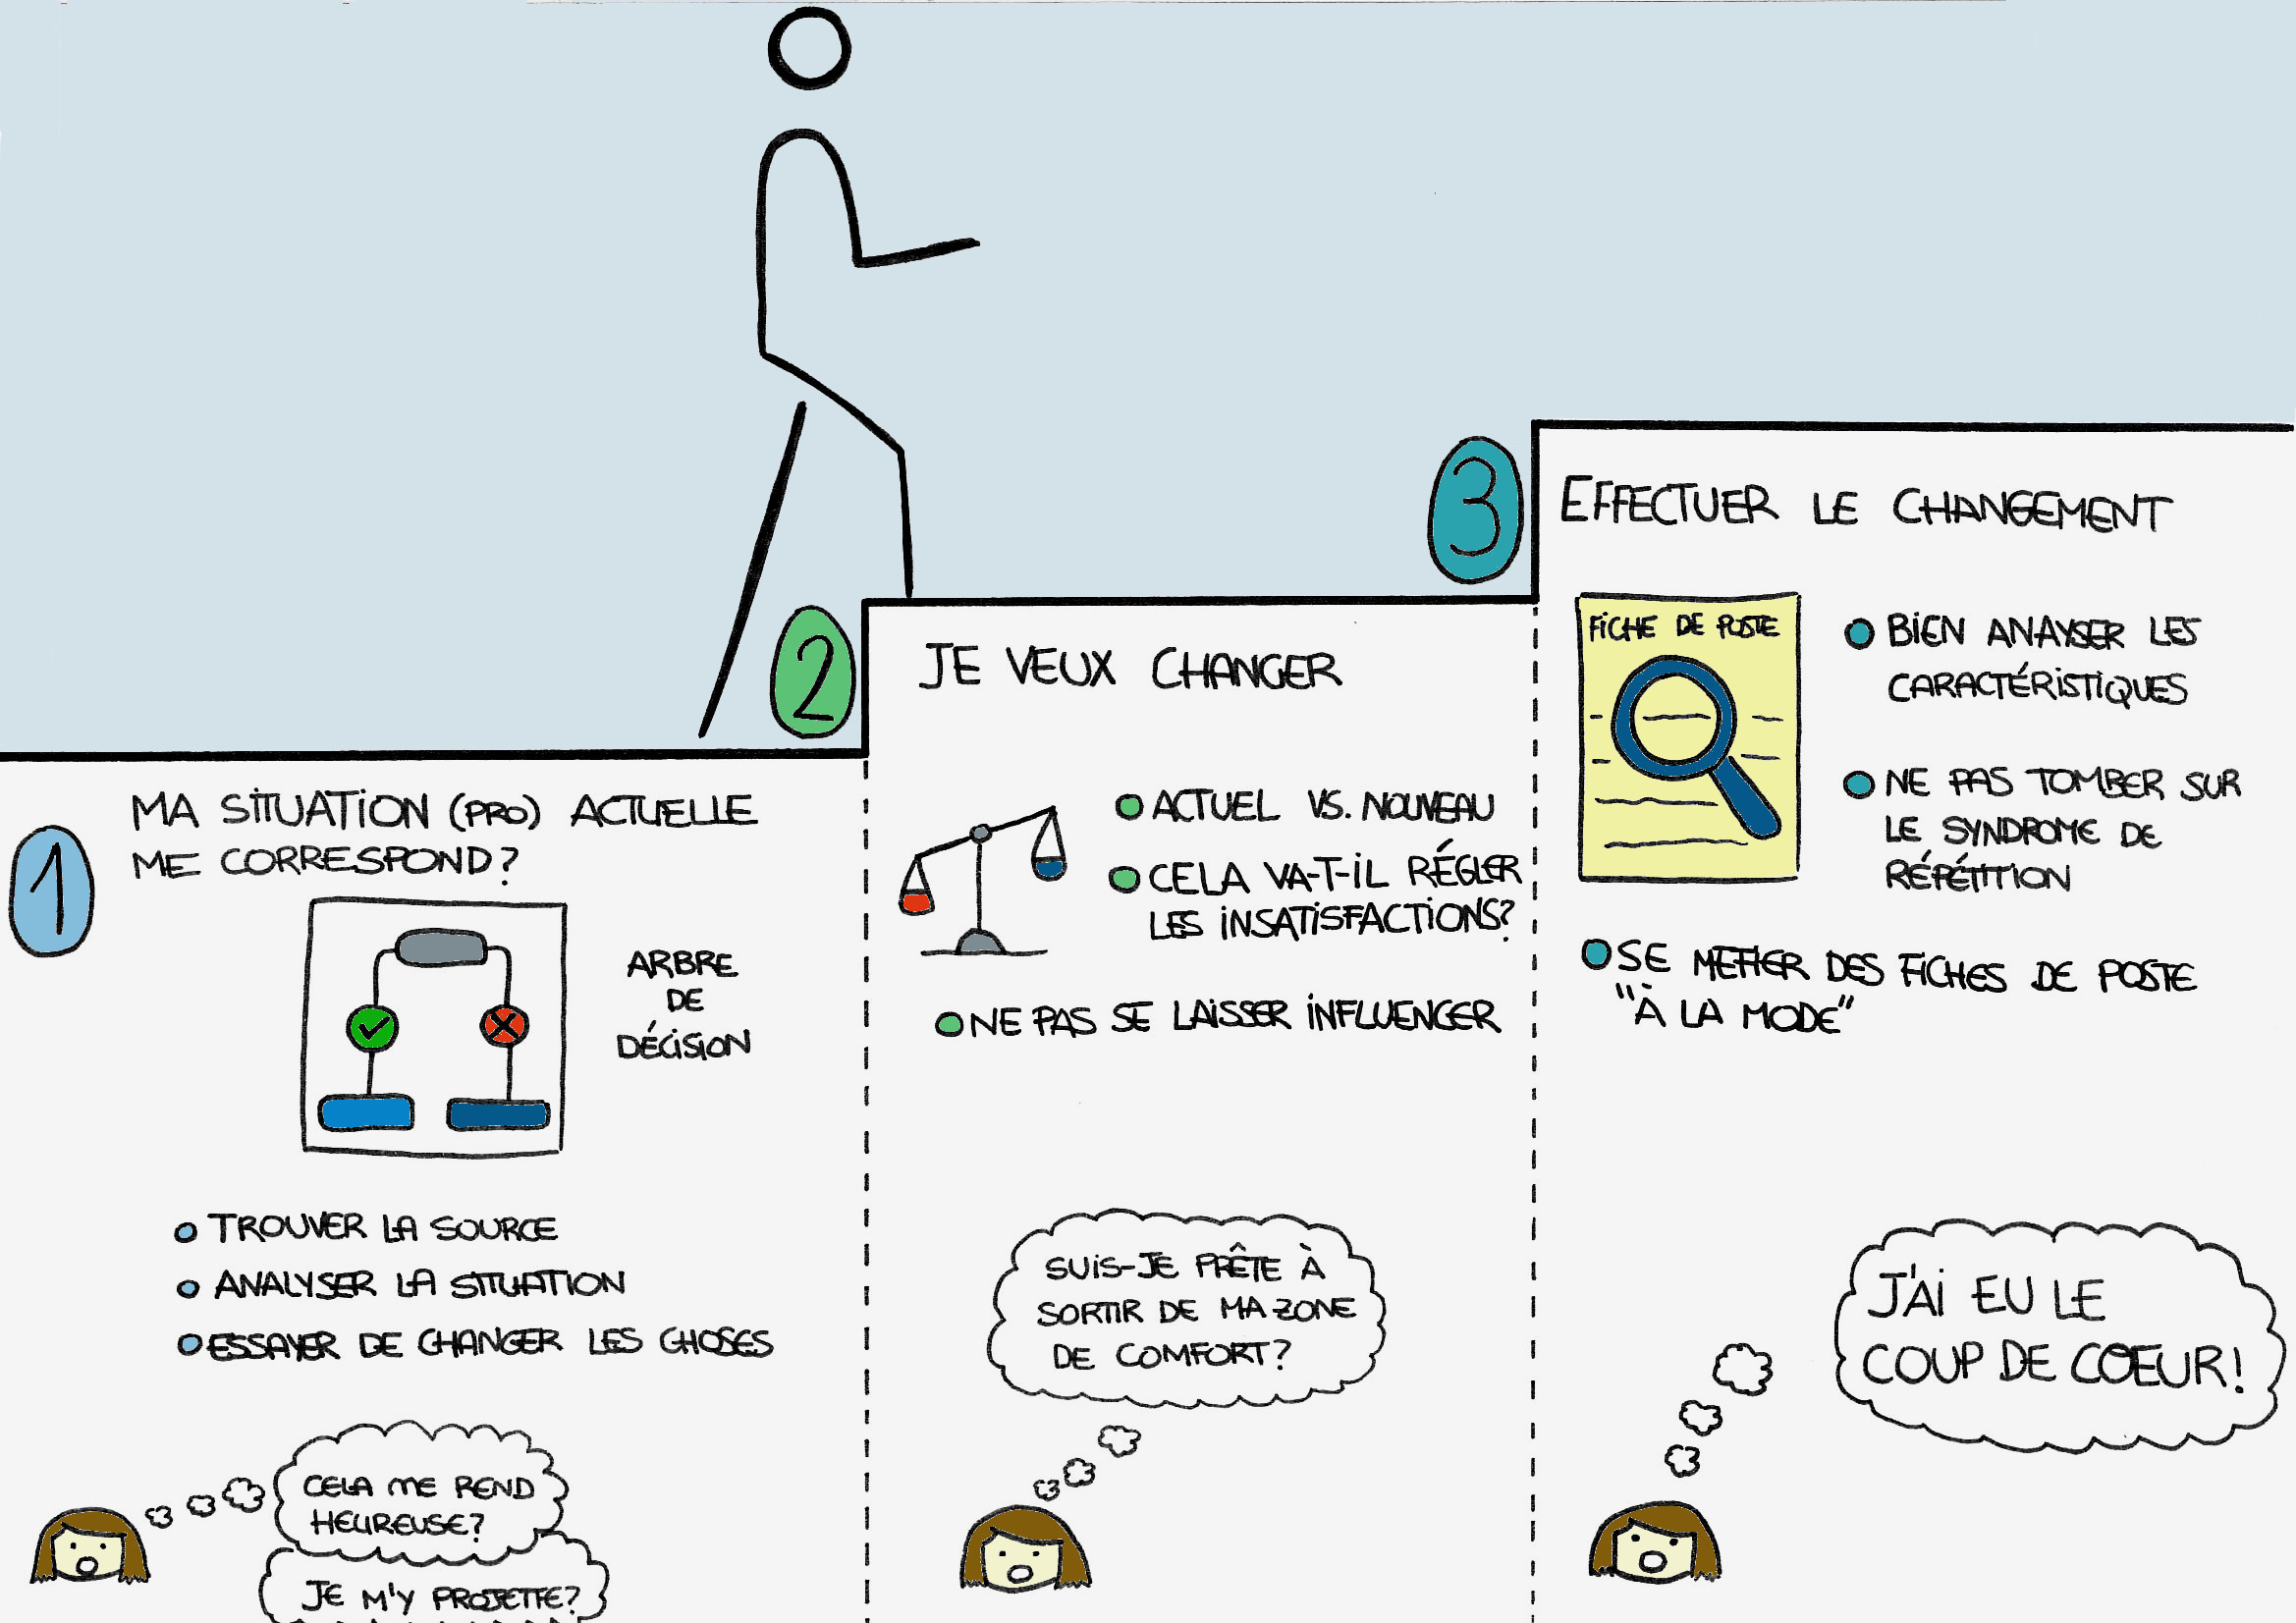 1
MA SITUATION (PRO) ACTUELLE
ME CORRESPOND?
ARBRE
DE
DÉCISION
TROUVER LA SOURCE
ANALYSER LA SITUATION
ESSAYER DE CHANGER LES CHOSES
CELA ME REND
HEUREUSE?
JE M'Y PROJETTE?
2
JE VEUX CHANGER
ACTUEL VS. NOUVEAU
CELA VA-T-IL RÉGLER
LES INSATISFACTIONS?
NE PAS SE LAISSER INFLUENCER
SUIS-JE PRÊTE À
SORTIR DE MA ZONE
DE COMFORT?
3
EFFECTUER LE CHANGEMENT
FICHE DE POSTE
BIEN ANAYSER LES
CARACTÉRISTIQUES
NE PAS TOMBER SUR
LE SYNDROME DE
RÉPÉTITION
SE MEFIER DES FICHES DE POSTE
"À LA MODE"
J'AI EU LE
COUP DE COEUR!